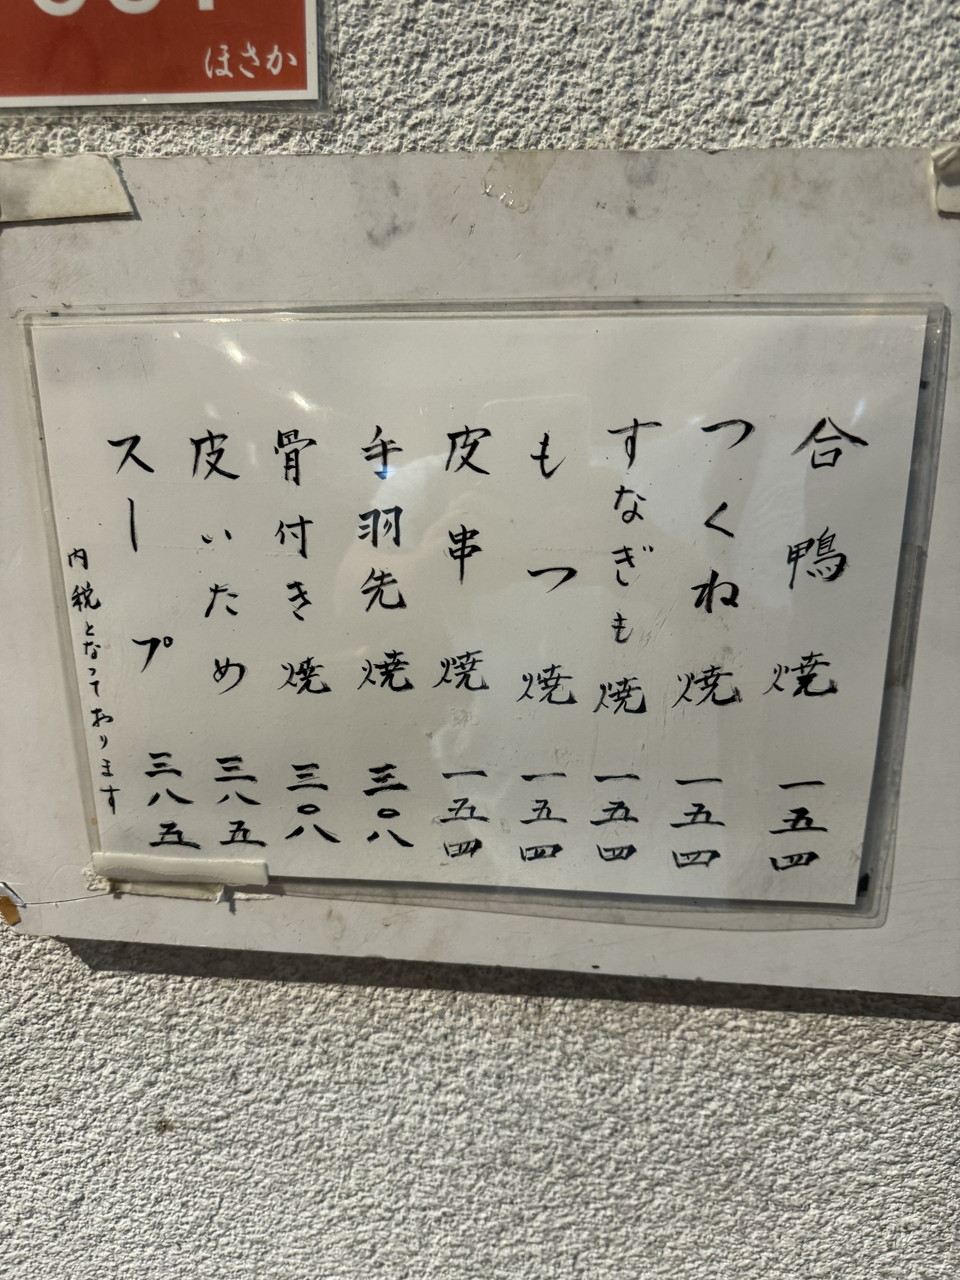 ほさか
合鴨焼 一五四
つくね焼 一五四
すなぎも焼 一五四
もつ焼 一五四
皮串焼 一五四
手羽先焼 三〇八
骨付き焼 三〇八
皮いため 三八五
スープ 三八五
内税となっております